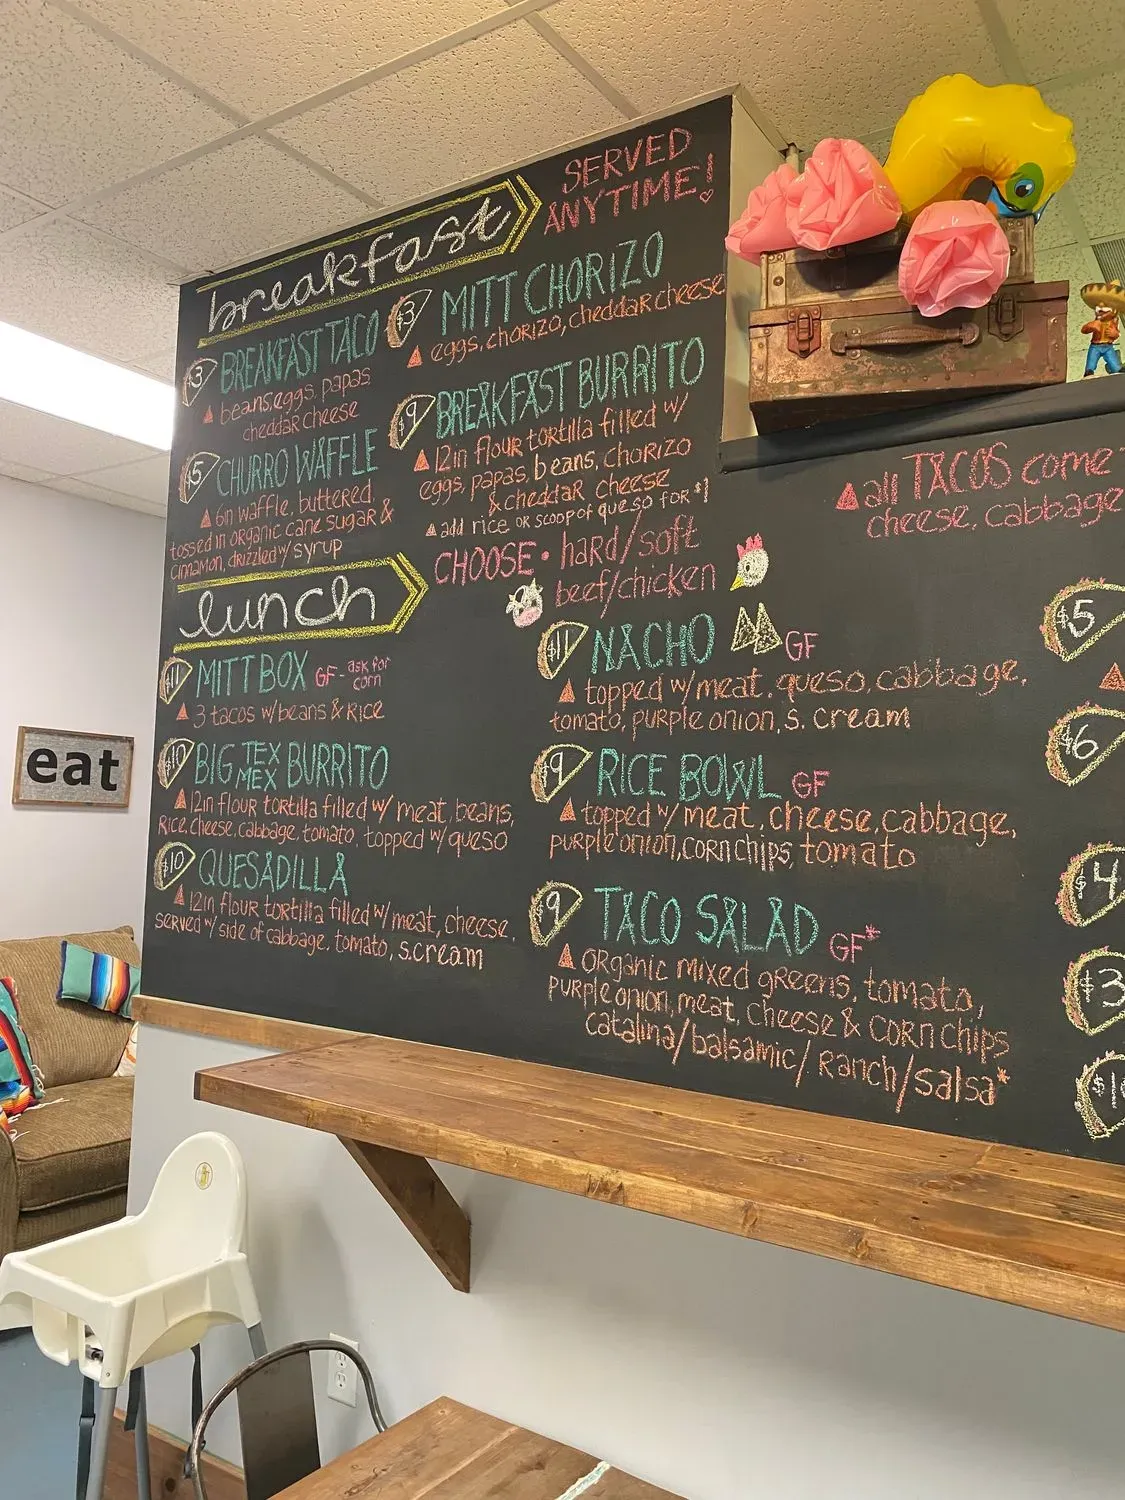 breakfast
SERVED
ANYTIME!
$3 BREAKFAST TACO
beans, eggs, papas
cheddar cheese
$5 CHURRO WAFFLE
6in waffle, buttered,
tossed in organic cane sugar &
cinnamon, drizzled w/ syrup
$3 MITT CHORIZO
eggs, chorizo, cheddar cheese
$9 BREAKFAST BURRITO
12in flour tortilla filled w/
eggs, papas, beans, chorizo
& cheddar cheese
add rice or scoop of queso for $1
lunch
CHOOSE • hard/soft
beef/chicken
$11 MITT BOX GF - ask for
corn
3 tacos w/beans & Rice
$10 BIG TEX
MEX BURRITO
12in flour tortilla filled w/ meat, beans,
Rice, cheese, cabbage, tomato, topped w/ queso
$10 QUESADILLA
12in flour tortilla filled w/ meat, cheese,
served w/ side of cabbage, tomato, s.cream
$11 NACHO GF
topped w/meat, queso, cabbage,
tomato, purple onion, s. cream
$9 RICE BOWL GF
topped w/ meat, cheese, cabbage,
purple onion, corn chips, tomato
$9 TACO SALAD GF*
organic mixed greens, tomato,
purple onion, meat, cheese & corn chips
catalina/balsamic/ Ranch/salsa*
all TACOS come
cheese, cabbage
$5
$6
$4
$3
eat